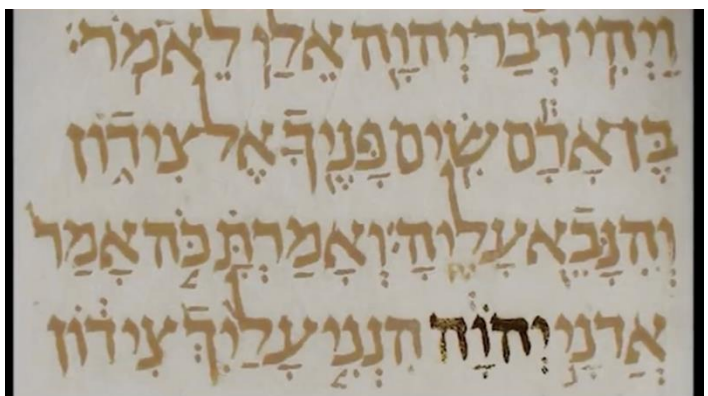 וַיְהִי דְבַר יְהוָה אֵלַי לֵאמֹר׃
בֶּן אָדָם שִׂים פָּנֶיךָ אֶל צִידוֹן
וְהִנָּבֵא עָלֶיהָ׃ וְאָמַרְתָּ כֹּה אָמַר
אֲדֹנָי יְהֹוָה הִנְנִי עָלַיִךְ צִידוֹן